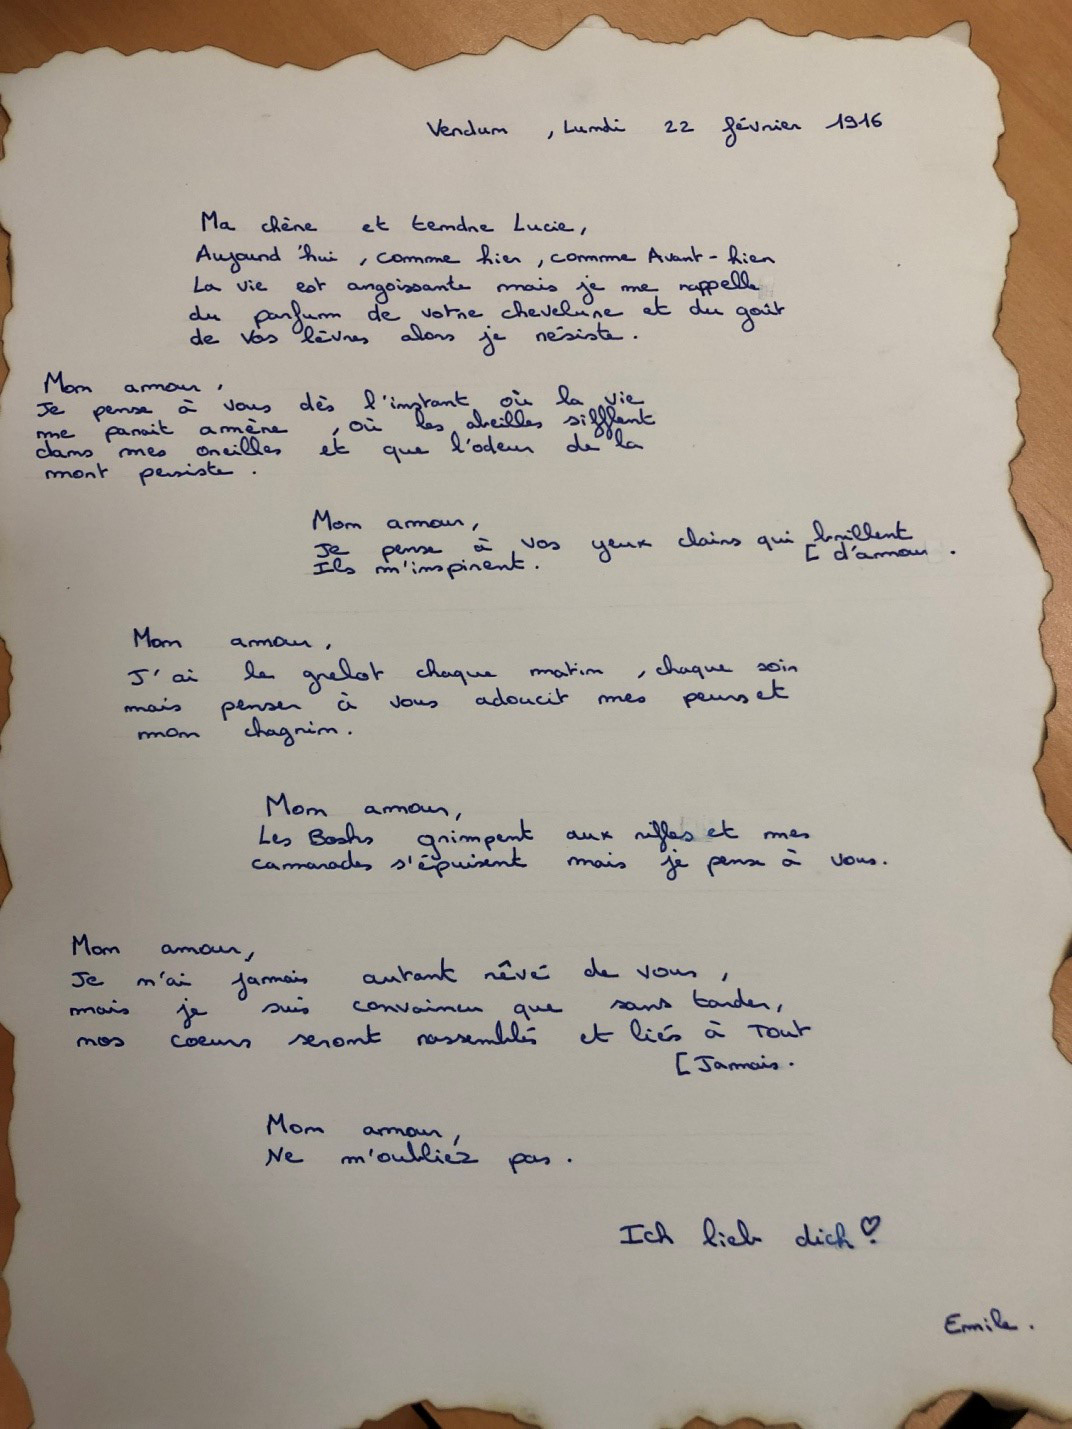 Verdun, Lundi 22 février 1916
Ma chère et tendre Lucie,
Aujourd'hui, comme hier, comme Avant-hier
La vie est angoissante mais je me rappelle
du parfum de votre chevelure et du goût
de vos lèvres alors je résiste.
Mon amour,
Je pense à vous dès l'instant où la vie
me parait amère, où les abeilles sifflent
dans mes oreilles et que l'odeur de la
mort persiste.
Mon amour,
Je pense à vos yeux clairs qui brillent
[ d'amour.
Ils m'inspirent.
Mon amour,
J'ai le grelot chaque matin, chaque soir
mais penser à vous adoucit mes peurs et
mon chagrin.
Mon amour,
Les Boshs grimpent aux rifles et mes
camarades s'épuisent mais je pense à vous.
Mon amour,
Je n'ai jamais autant rêvé de vous,
mais je suis convaincu que sans tarder,
nos coeurs seront rassemblés et liés à Tout
[ Jamais.
Mon amour,
Ne m'oubliéz pas.
Ich lieb dich♡.
Emile.